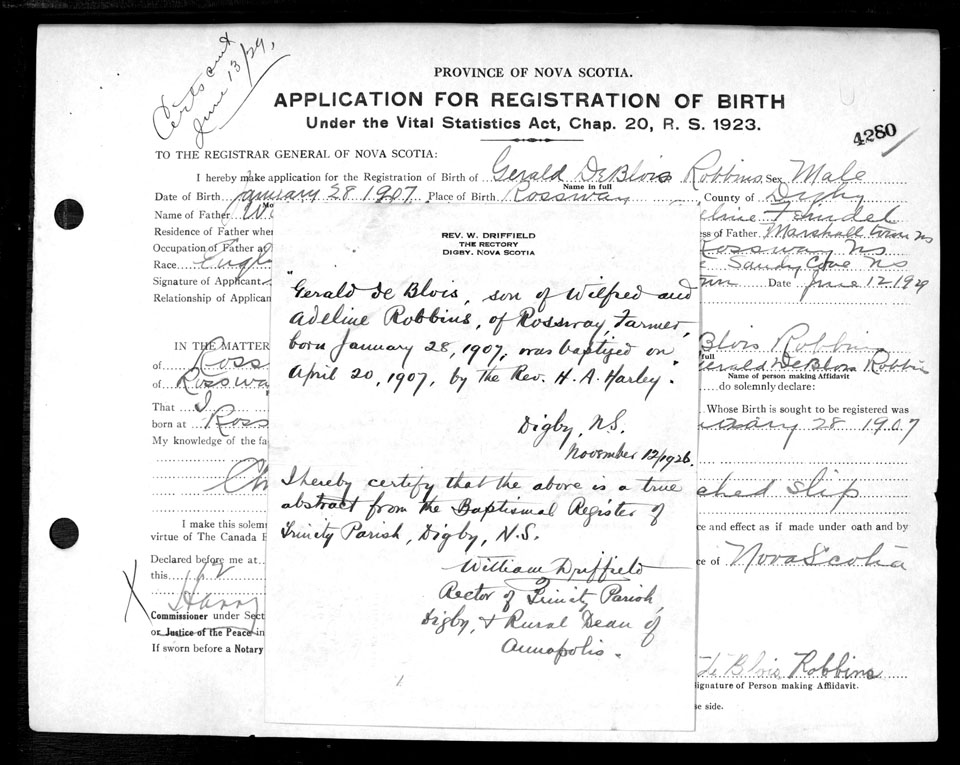 Cert sent
June 13/29,
PROVINCE OF NOVA SCOTIA.
APPLICATION FOR REGISTRATION OF BIRTH
Under the Vital Statistics Act, Chap. 20, R. S. 1923.
4280
TO THE REGISTRAR GENERAL OF NOVA SCOTIA:
I hereby make application for the Registration of Birth of Gerald DeBlois Robbins Sex Male
Name in full
Date of Birth January 28 1907 Place of Birth Rossway County of Digby
Name of Father
Residence of Father whe ss of Father Marshalltown ns
Occupation of Father a Rossway Ns
Race Sandy Cove Ns
Signature of Applicant Date June 12 1929
Relationship of Applican
REV. W. DRIFFIELD
THE RECTORY
DIGBY, NOVA SCOTIA
"Gerald de Blois, son of Wilfred and
Adeline Robbins, of Rossway, Farmer,
born January 28, 1907, was baptized on
April 20, 1907, by the Rev. H. A. Harley".
Digby, N.S.
November 12/1926.
I hereby certify that the above is a true
abstract from the Baptismal Register of
Trinity Parish, Digby, N.S.
William Driffield
Rector of Trinity Parish,
Digby, & Rural Dean of
Annapolis.
IN THE MATTER Blois Robbins
of Ross full Gerald DeBlois Robbins
of Rosswa Name of person making Affidavit
do solemnly declare:
That I Whose Birth is sought to be registered was
born at Ross uary 28 1907
My knowledge of the fa
ched slip
I make this solem ce and effect as if made under oath and by
virtue of The Canada E
Declared before me at ce of Nova Scotia
this 12
Harry
Commissioner under Sect
or Justice of the Peace in
If sworn before a Notary
de Blois Robbins
ignature of Person making Affidavit.
se side.